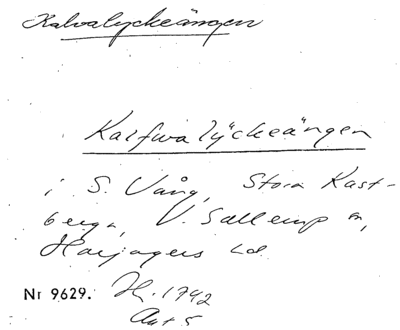 Kalvalyckeängen
Kalfwa lyckeängen
i S. Vång, Stora Kast-
berga, V. Sallerup sn,
Harjagers hd
Nr 9629. Jb. 1742
Akt 5